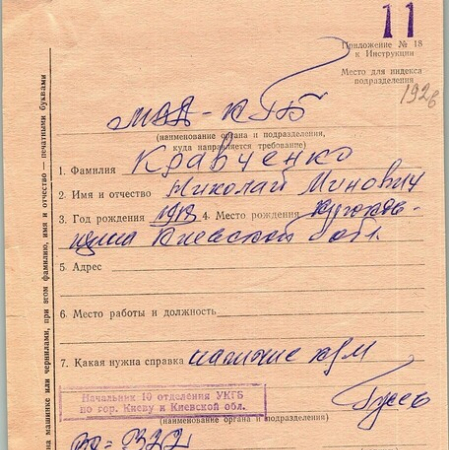 11
Приложение № 18
к Инструкции
Место для индекса
подразделения
1928
КГБ
(наименование органа и подразделения,
куда направляется требование)
1. Фамилия Кравченко
2. Имя и отчество Николай Минович
3. Год рождения 4. Место рождения
Киевской обл.
5. Адрес
6. Место работы и должность
7. Какая нужна справка наличие
Начальник 10 отделения УКГБ
по гор. Киеву и Киевской обл.
(наименование органа и подразделения)
на машинке или чернилами, при этом фамилию, имя и отчество — печатными буквами